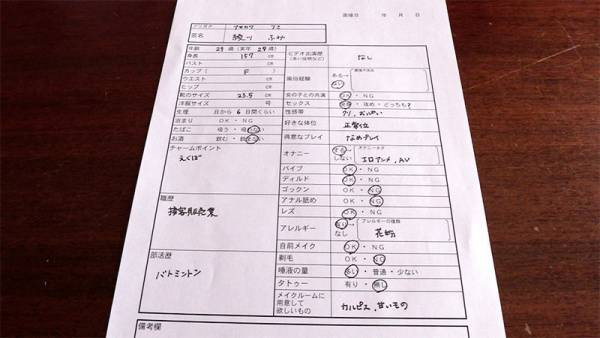 面接日 年 月 日
フリガナ
芸名 綾川 ふみ
年齢 29歳 (実年 29歳)
身長 157 CM
バスト CM
カップ ( F )
ウエスト CM
ヒップ CM
靴のサイズ 23.5 CM
洋服サイズ 号
生理 日から 6日間くらい
お泊まり OK・NG
たばこ 吸う・吸わない
お酒 飲む・飲まない
チャームポイント
えくぼ
職歴
接客販売業
部活歴
バトミントン
ビデオ出演歴 なし
風俗経験 ある→
ない
女の子との共演 OK・NG
セックス 受身・攻め・どっちも?
性感帯 クリ、おっぱい
好きな体位 正常位
得意なプレイ なめプレイ
オナニー する→
しない エロアニメ、AV
バイブ OK・NG
ディルド OK・NG
ゴックン OK・NG
アナル舐め OK・NG
レズ OK・NG
アレルギー ある→ アレルギーの種類
なし 花粉
自前メイク OK・NG
剃毛 OK・NG
唾液の量 多い・普通・少ない
タトゥー 有り・無し
メイクルームに
用意して
欲しいもの カルピス、甘いもの
備考欄